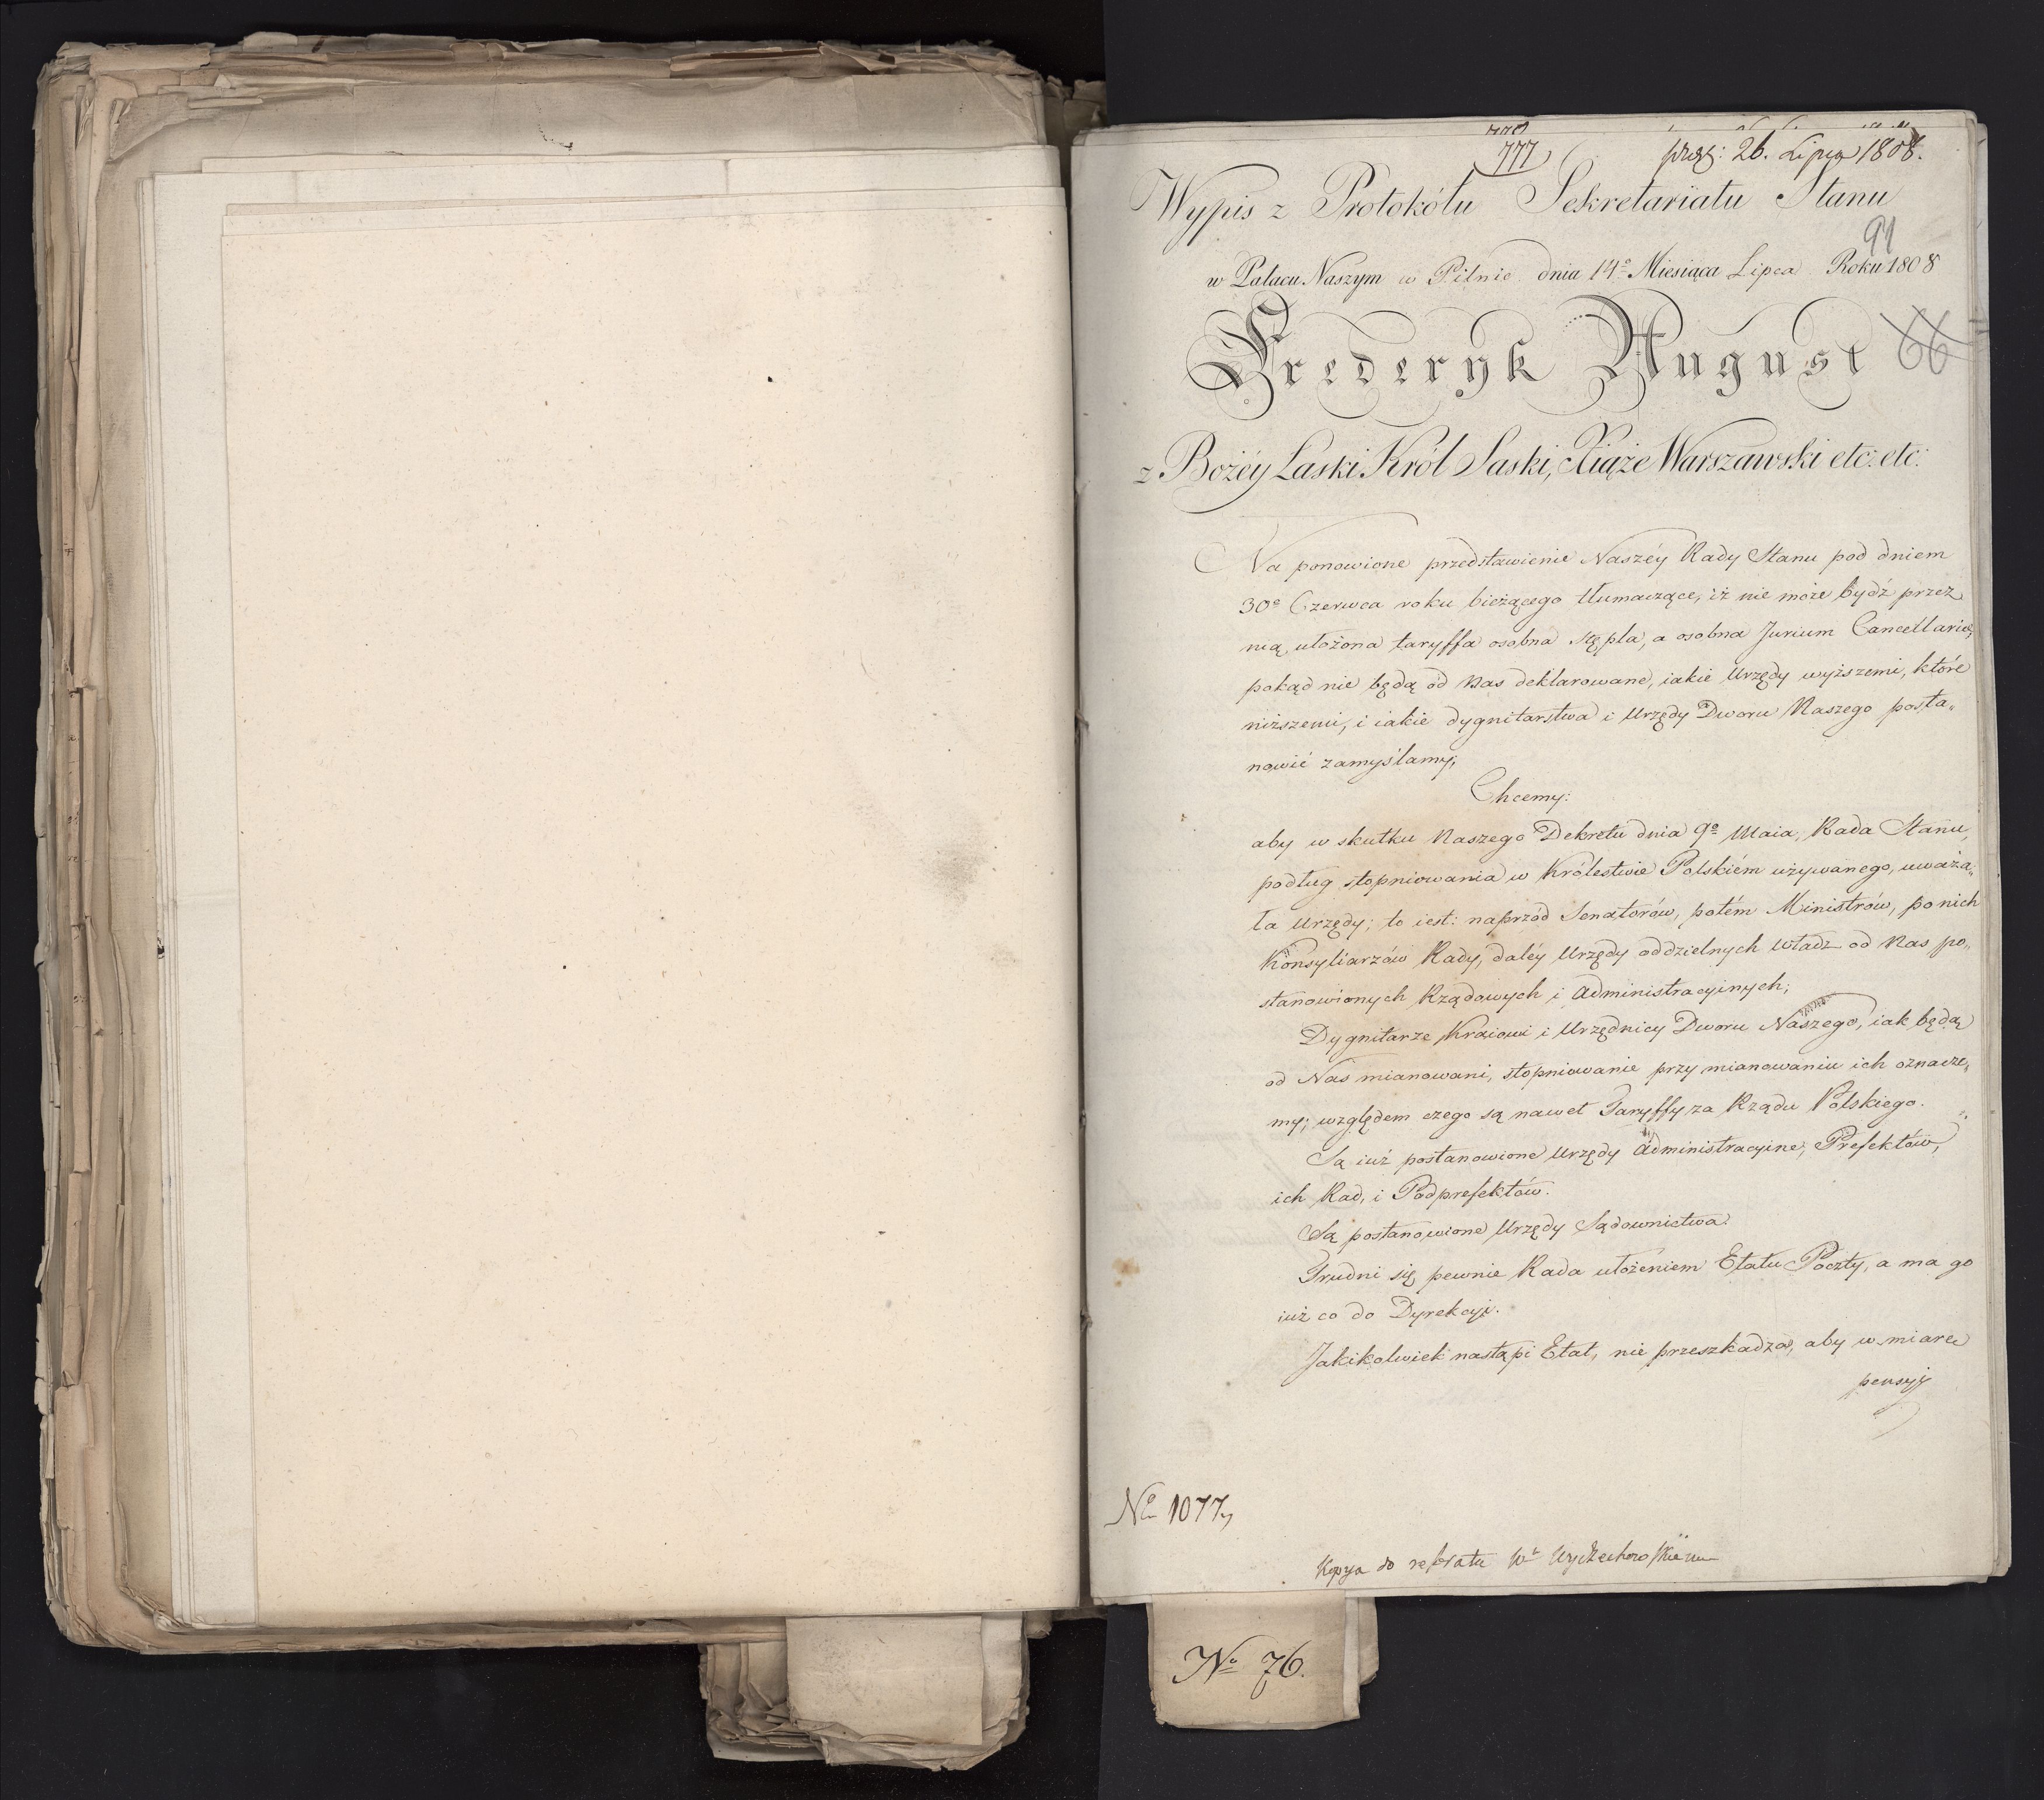 777
prez: 26. Lipca 1808.
Wypis z Protokółu Sekretariatu Stanu
91
w Pałacu Naszym w Pilnic dnia 14º Miesiąca Lipca Roku 1808
Frederyk August
66
z Bożéy Łaski Król Saski, Xiąże Warszawski etc: etc:
Na ponowione przedstawienie Naszéy Rady Stanu pod dniem
30º Czerwca roku bieżącego tłumaczące, iż nie może bydź przez
nią ułożona taryffa osobna stępla, a osobna Jurium Cancellariæ,
pokąd nie będą od Nas deklarowane, iakie Urzędy wyższemi, które
niższemi, i iakie dygnitarstwa i Urzędy Dworu Naszego posta„
nowić zamyślamy;
Chcemy:
aby w skutku Naszego Dekretu dnia 9º Maia, Rada Stanu,
podług stopniowania w Królestwie Polskiém używanego, uważa„
ła Urzędy; to iest: naprzód Senatorów, potém Ministrów, po nich
Konsyliarzów Rady, daléy Urzędy oddzielnych Władz od Nas po„
stanowionych Rządowych i Administracyinych;
Dygnitarze Kraiowi i Urzędnicy Dworu Naszego, iak będą
od Nas mianowani, stopniowanie przy mianowaniu ich oznacze„
my; względem czego są nawet Taryffy za Rządu Polskiego.
Są iuż postanowione Urzędy Administracyine, Prefektów,
ich Rad, i Podprefektów.
Są postanowione Urzędy Sądownictwa.
Trudni się pewnie Rada ułożeniem Etatu Poczty, a ma go
iuż co do Dyrekcyi.
Jakikolwiek nastąpi Etat, nie przeszkadza, aby w miarę
pensyy
Nº 1077,
Kopya do referatu Wº Wyczechowskiemu
Nº 76.